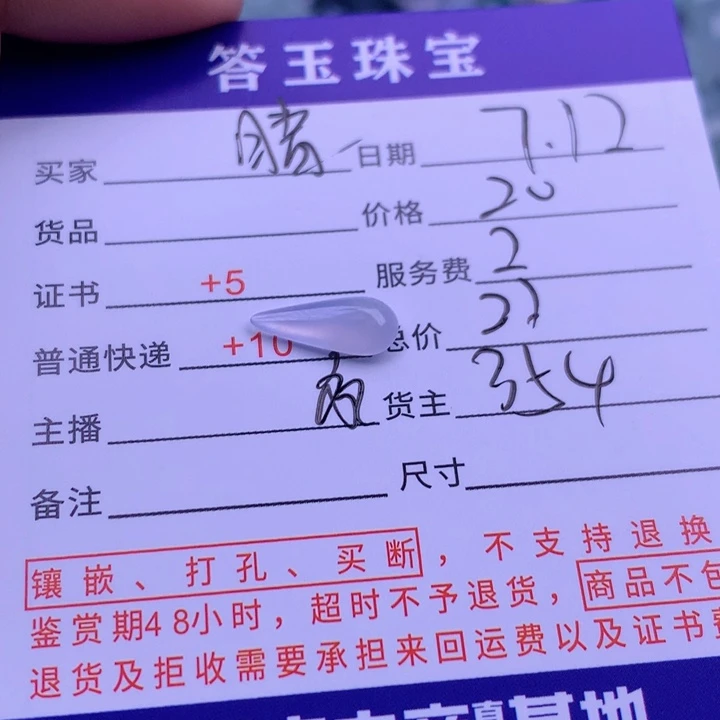 答玉珠宝
买家 腾 日期 7.12
货品 价格 20
证书 +5 服务费 2
普通快递 +10 总价 27
主播 货主 354
备注 尺寸
镶嵌、打孔、买断，不支持退换
鉴赏期48小时，超时不予退货，商品不包
退货及拒收需要承担来回运费以及证书费
基地